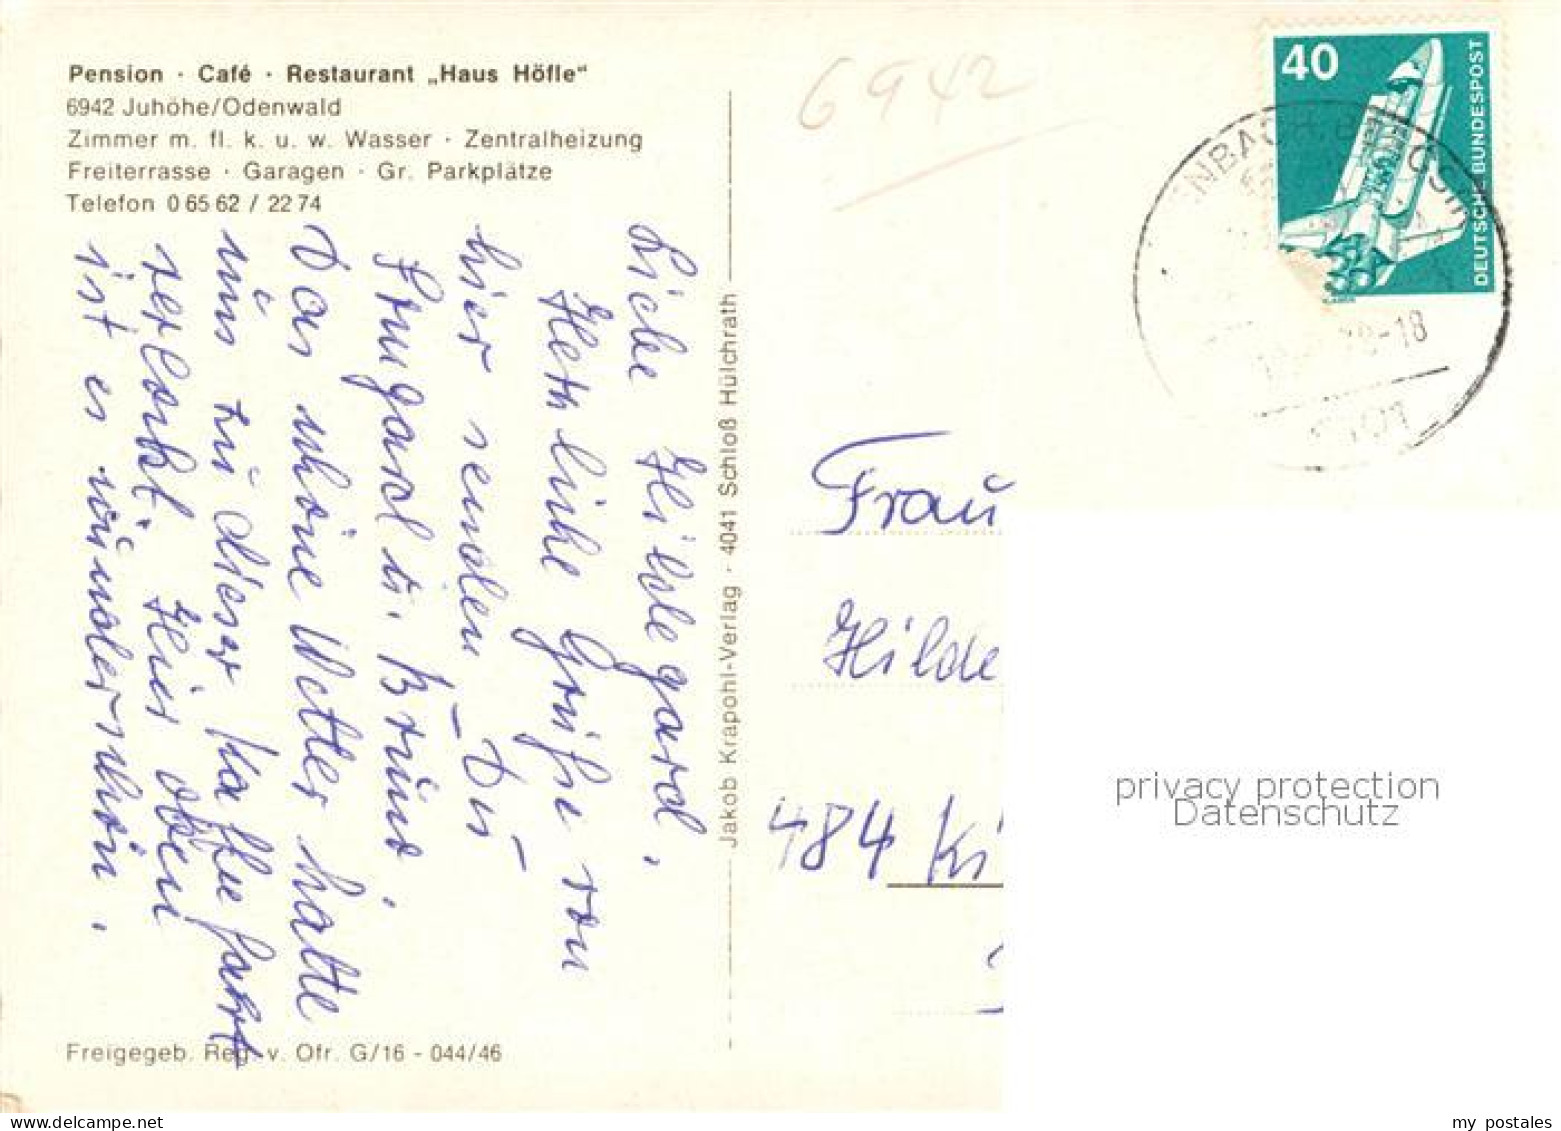 Pension · Café · Restaurant „Haus Höfle“
6942 Juhöhe/Odenwald
Zimmer m. fl. k. u. w. Wasser · Zentralheizung
Freiterrasse · Garagen · Gr. Parkplätze
Telefon 0 65 62 / 22 74
Liebe Hildegard,
Herzliche Grüße von
hier senden Dir
Irmgard u. Bruno.
Das schöne Wetter hatte
uns zu dieser Kaffeefahrt
verlockt. Hier oben
ist es wunderschön.
Freigegeb. Reg. v. Ofr. G/16 - 044/46
Jakob Krapohl-Verlag · 4041 Schloß Hülchrath
6942
40
DEUTSCHE BUNDESPOST
-18
Frau
Hilde
484 Ki
privacy protection
Datenschutz
my postales
www.delcampe.net